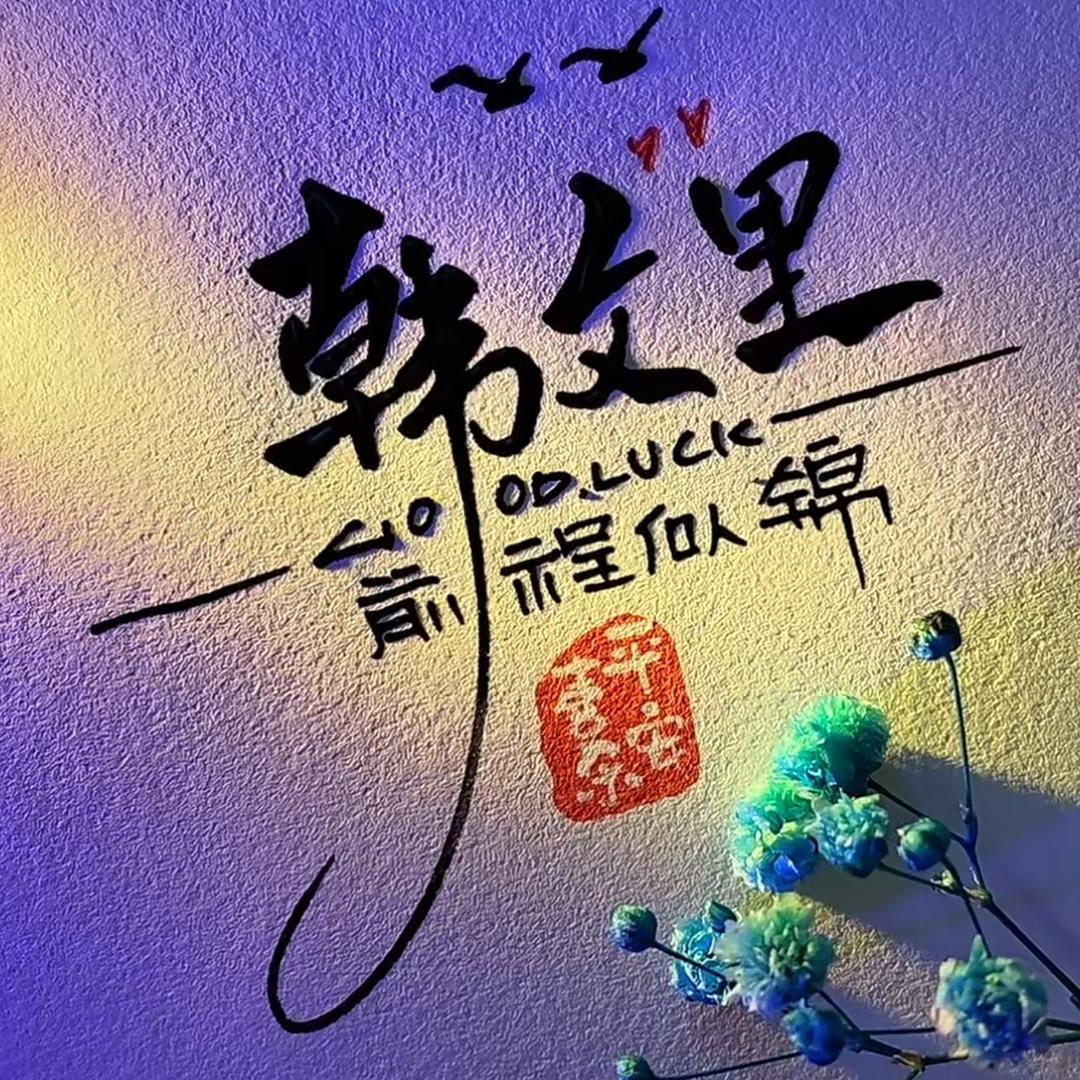 韩文里
GOOD.LUCK
前程似锦
平安
喜乐